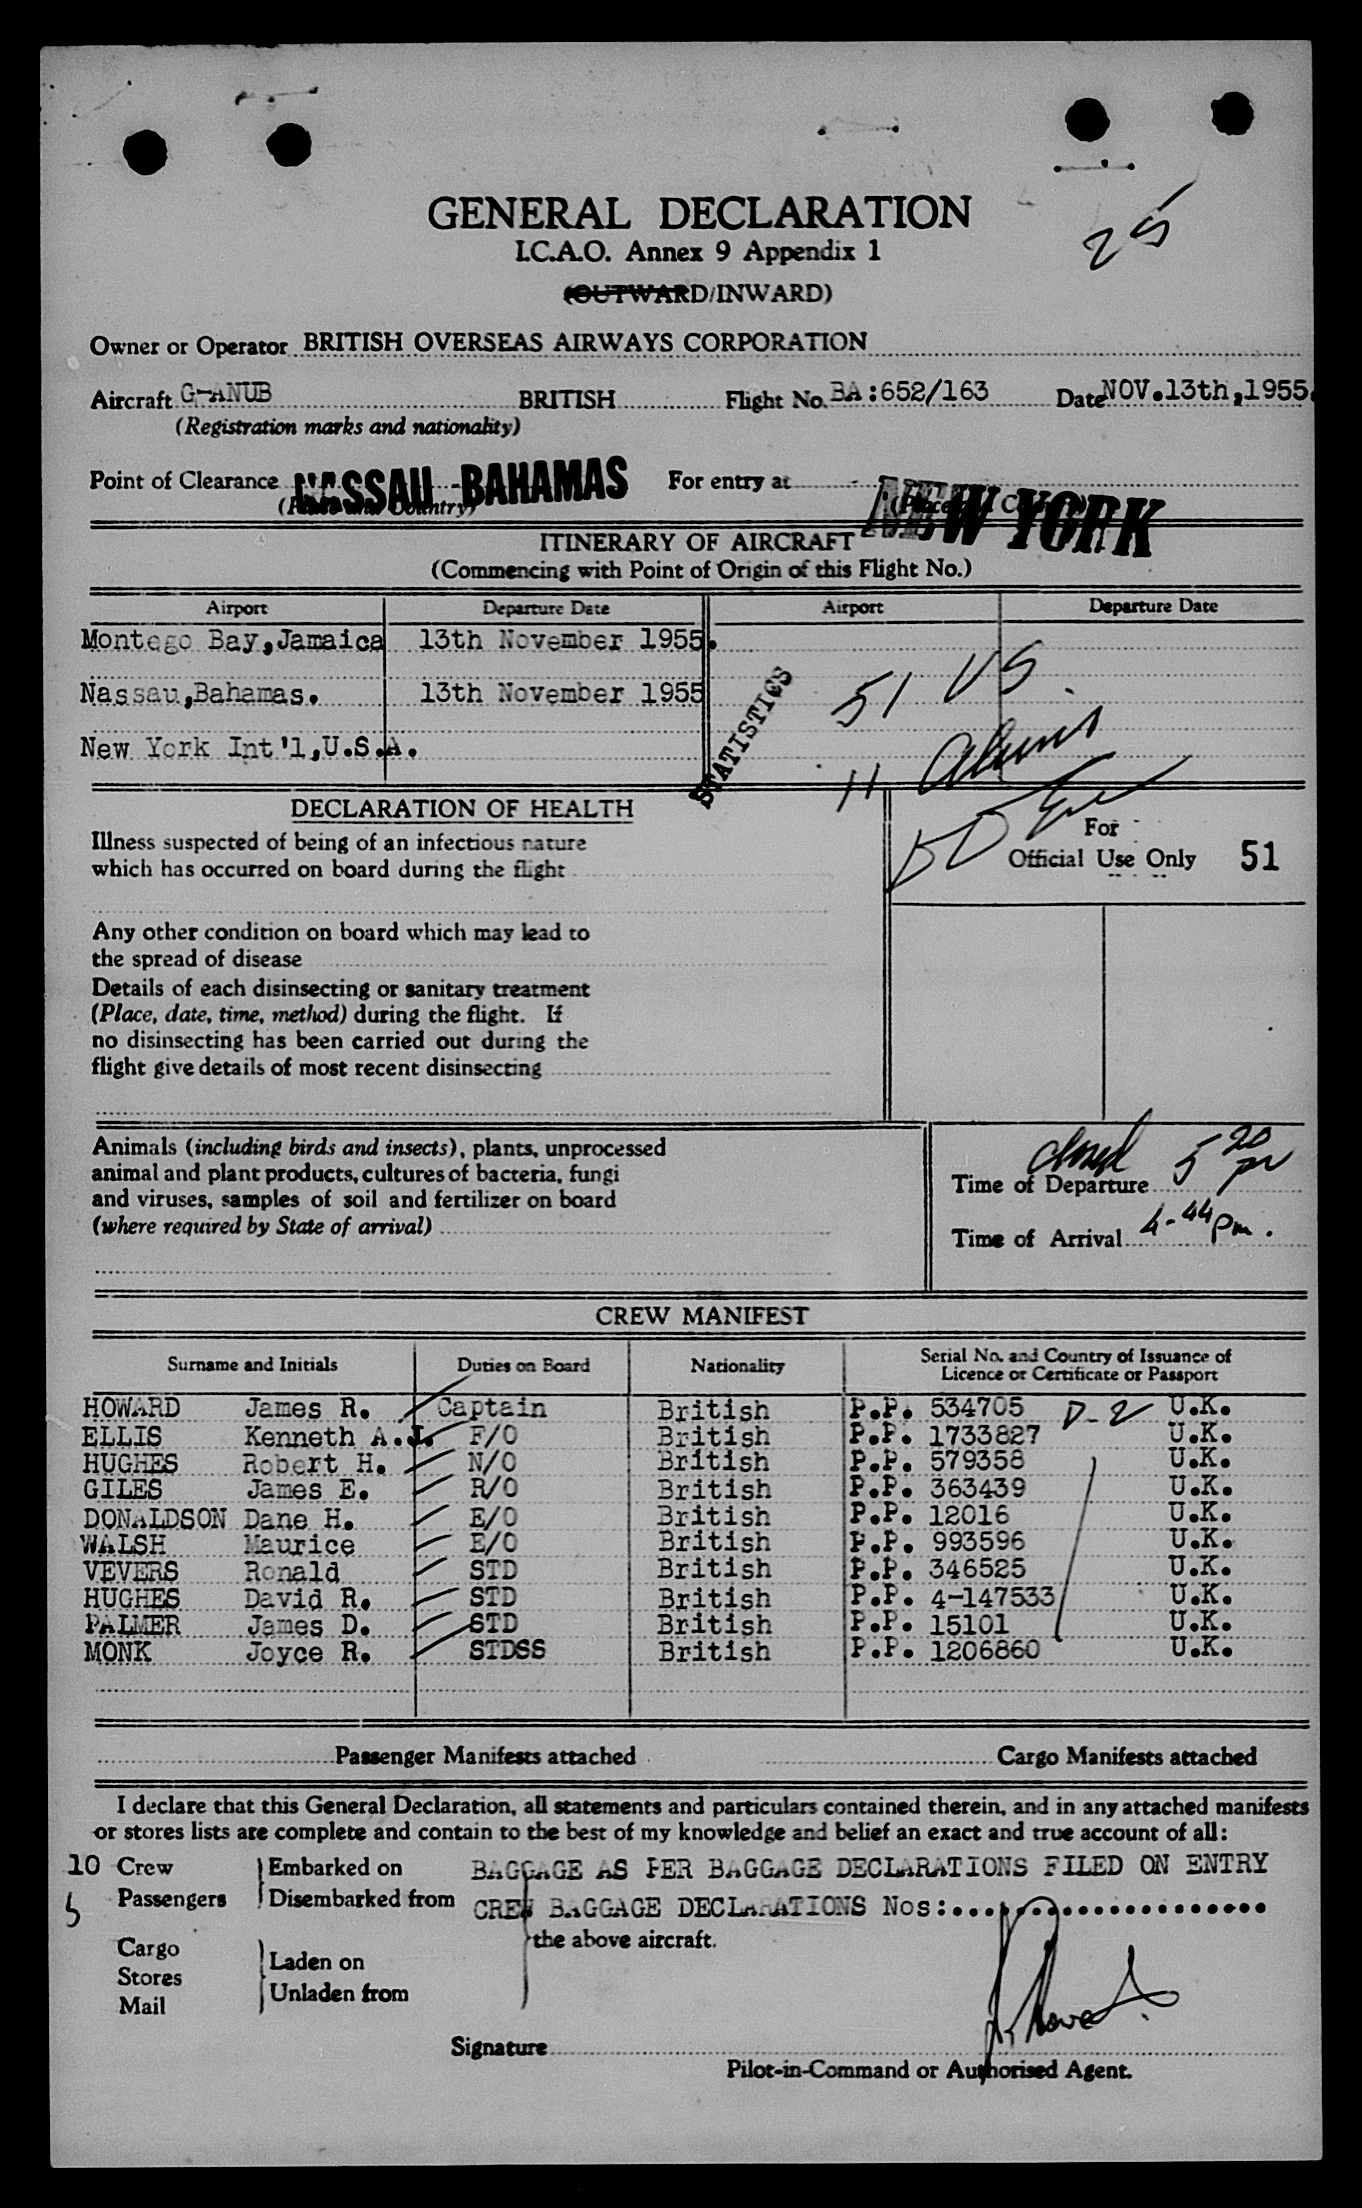 GENERAL DECLARATION
I.C.A.O. Annex 9 Appendix 1
25
(OUTWARD/INWARD)
Owner or Operator BRITISH OVERSEAS AIRWAYS CORPORATION
Aircraft G-ANUB BRITISH Flight No. BA:652/163 Date NOV.13th,1955.
(Registration marks and nationality)
Point of Clearance NASSAU - BAHAMAS For entry at NEW YORK
ITINERARY OF AIRCRAFT
(Commencing with Point of Origin of this Flight No.)
Airport Departure Date Airport Departure Date
Montego Bay,Jamaica 13th November 1955.
Nassau,Bahamas. 13th November 1955
New York Int'l,U.S.A.
STATISTICS
51 US
11 Aliens
DECLARATION OF HEALTH
Illness suspected of being of an infectious nature
which has occurred on board during the flight
For
Official Use Only 51
Any other condition on board which may lead to
the spread of disease
Details of each disinsecting or sanitary treatment
(Place, date, time, method) during the flight. If
no disinsecting has been carried out during the
flight give details of most recent disinsecting
Animals (including birds and insects), plants, unprocessed
animal and plant products, cultures of bacteria, fungi
and viruses, samples of soil and fertilizer on board
(where required by State of arrival)
closed 5 20 pm
Time of Departure
Time of Arrival 4-44 pm.
CREW MANIFEST
Surname and Initials Duties on Board Nationality Serial No. and Country of Issuance of Licence or Certificate or Passport
HOWARD James R. Captain British P.P. 534705 D-2 U.K.
ELLIS Kenneth A.J. F/O British P.P. 1733827 U.K.
HUGHES Robert H. N/O British P.P. 579358 U.K.
GILES James E. R/O British P.P. 363439 U.K.
DONALDSON Dane H. E/O British P.P. 12016 U.K.
WALSH Maurice E/O British P.P. 993596 U.K.
VEVERS Ronald STD British P.P. 346525 U.K.
HUGHES David R. STD British P.P. 4-147533 U.K.
PALMER James D. STD British P.P. 15101 U.K.
MONK Joyce R. STDSS British P.P. 1206860 U.K.
Passenger Manifests attached Cargo Manifests attached
I declare that this General Declaration, all statements and particulars contained therein, and in any attached manifests
or stores lists are complete and contain to the best of my knowledge and belief an exact and true account of all:
10 Crew Embarked on BAGGAGE AS PER BAGGAGE DECLARATIONS FILED ON ENTRY
5 Passengers Disembarked from CREW BAGGAGE DECLARATIONS Nos:....................
the above aircraft.
Cargo
Stores
Mail
Laden on
Unladen from
Signature
Pilot-in-Command or Authorised Agent.